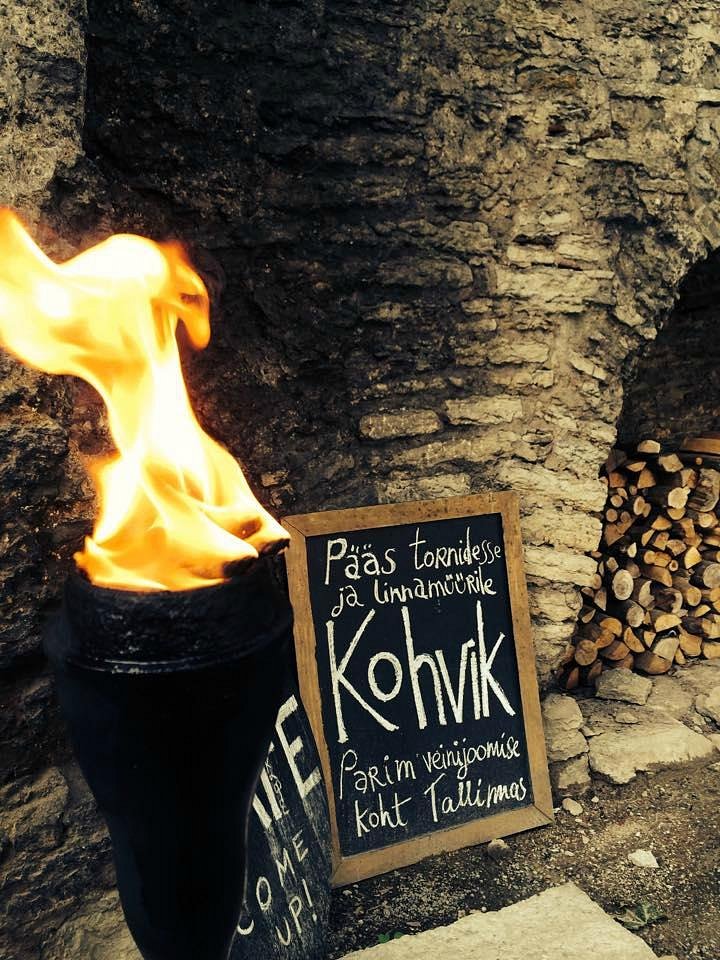 Pääs tornidesse
ja linnamüürile
Kohvik
Parim veinijoomise
koht Tallinnas
COME
UP!